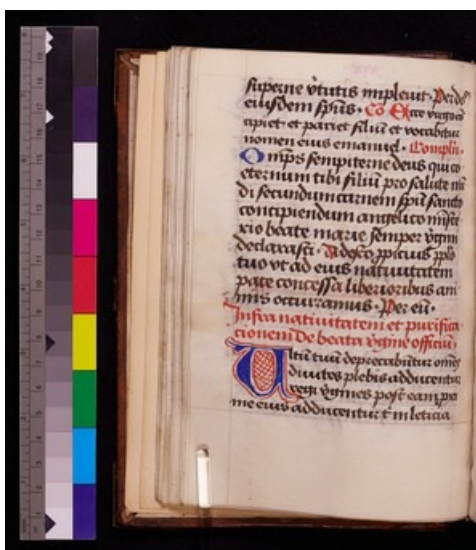 superne v̉tutis impleuit · Per dn̄
eiusdem sp̄us · Cō Ecce virgo con
cipiet et pariet filiū et vocabitur
nomen eius emanuel · Complr̄ ·
Omp̄s sempiterne deus qui co
eternum tibi filiū pro salute mū
di secundum carnem sp̄u sancto
concipiendum angelico miste
rio beate marie semper v̉gini
declarasti · Adesto ppicius pplo
tuo vt ad eius natiuitatem
pace concessa liberioribus ani
mis occurramus · Per eū ·
Infra natiuitatem et purifica
cionem de beata v̉gine officiū ·
Ultū tuū deprecabūtur om̄es
diuites plebis adducentur
regi v̉gines post eam proxi
me eius adducentur t̄ in leticia